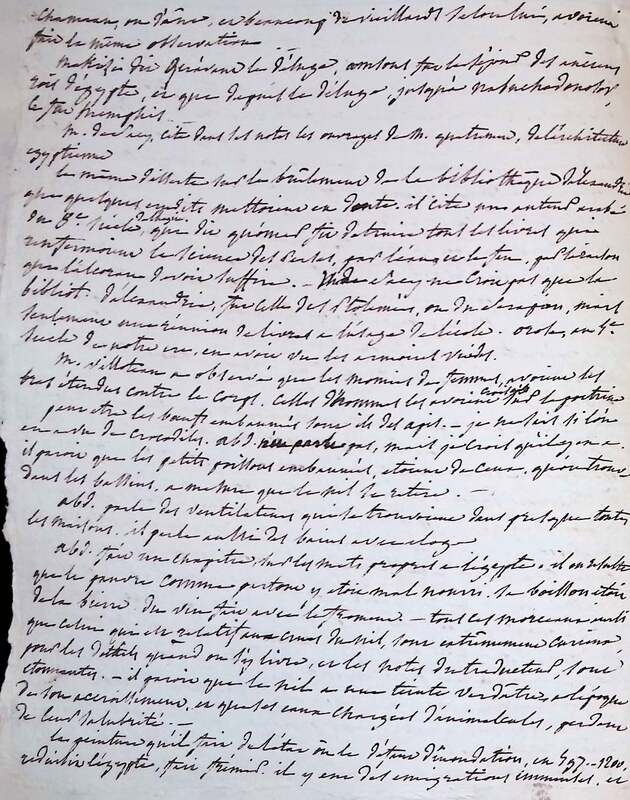 chameau, ou d'âne, et beaucoup de vieillards selon lui, avoient
fait la même observation
makrisi dit qu'avant le déluge, amsous fut le séjour des anciens
rois d'égypte, et que depuis le déluge, jusqu'à nabuchodonosor,
ce fut Memphis.
M. de Sacy, cite dans les notes les ouvrages de M. quatremere, de l'architecture
egyptienne
le même disserte sur le brûlement de la bibliothèque d'alexandrie
que quelques erudits mettoient en doute. il cite un auteur arabe
du 8e siècle de l'hegire, qui dit qu'omar fit detruire tous les livres que
renfermoient les sciences des Perses, par l'eau et le feu, par la raison
que l'alcoran devoit suffire. - de Sacy ne croit pas que la
bibliot. d'alexandrie, fut celle des Ptolemées, ou du Serapion, mais
seulement une réunion de livres à l'usage de l'école. orose, au 5e
siecle de notre ere, en avoit vu les armoires vuides.
M. Villoteau a observé que les momies de femmes, avoient les
bras étendus contre le corps, celles d'hommes les avoient croisés sur la poitrine
peut etre les boeufs embaumés sont ils des apis. - je ne sais si l'on
en a vu de crocodiles. abd. n'en parle pas, mais je crois qu'il y en a.
il paroit que les petits poissons embaumés, etoient de ceux, qu'on trouve
dans les bassins, a mesure que le nil se retire. -
abd. parle des ventilateurs qui se trouvoient dans presque toutes
les maisons. il parle aussi des bains avec eloge
abd. fait un chapitre, sur les mets propres a l'égypte. il en resulte
que le pauvre comme partout y etoit mal nourri. sa boisson etoit
de la bierre du vin fait avec le froment. - tous ces morceaux aussi
que celui qui est relatif aux crues du nil, sont extrêmement curieux,
pour les détails quand on s'y livre, et les notes du traducteur, sont
etonnantes. - il paroit que le nil a une teinte verdâtre, a l'epoque
de son accroissement, et que ses eaux chargées d'animalcules, perdent
de leur salubrité. -
la peinture qu'il fait de l'état où le défaut d'inondation, en 597.-1200,
reduisit l'égypte, fait fremir. il y eut des emigrations immenses, et